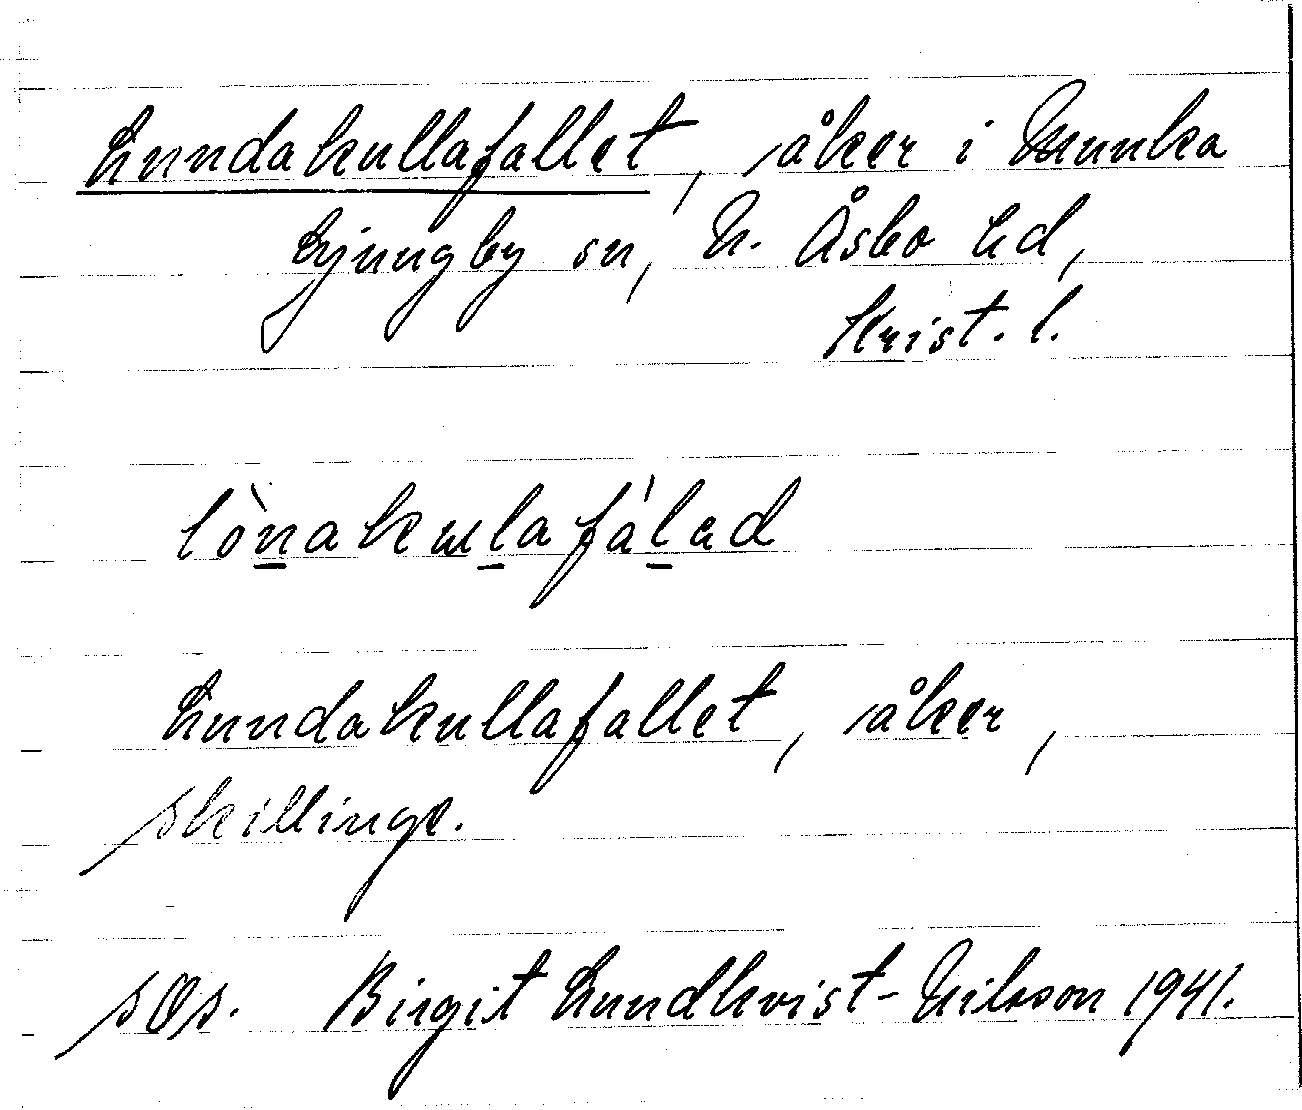 Lundakullafallet, åker i Munka
Ljungby sn, N. Åsbo hd,
Krist. l.
lònakulafáləd
Lundakullafallet, åker,
Skillinge.
SOS. Birgit Lundkvist-Nilsson 1941.